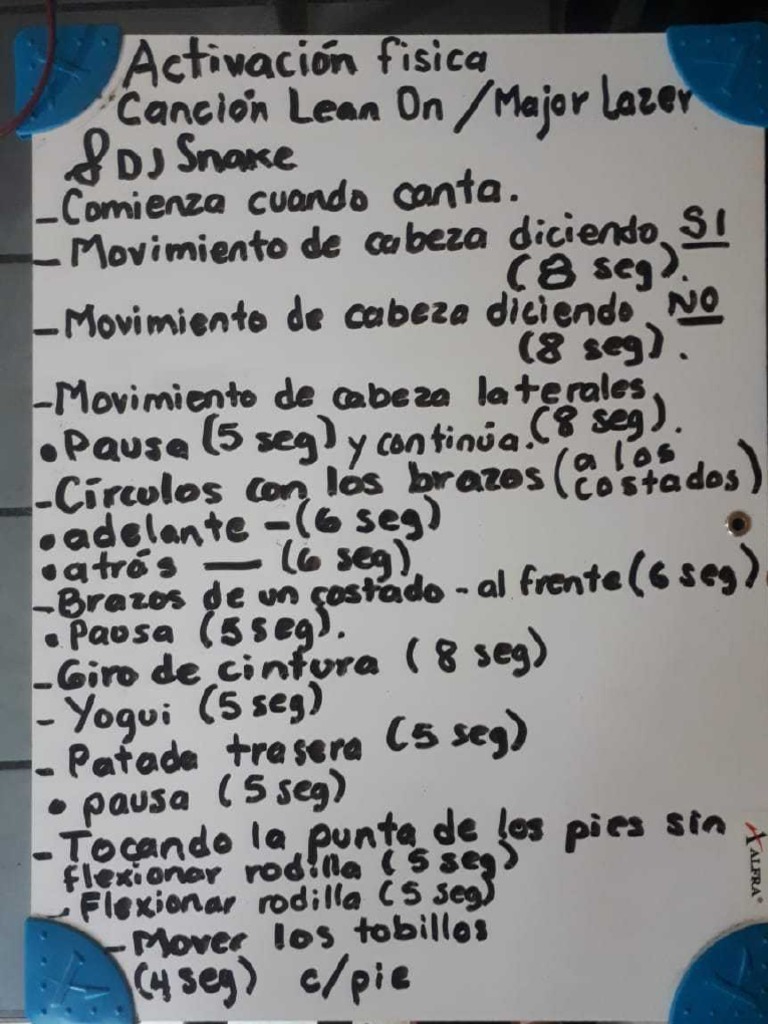 Activación fisica
Canción Lean On / Major Lazer
& DJ Snake
- Comienza cuando canta.
- Movimiento de cabeza diciendo SI
(8 seg).
- Movimiento de cabeza diciendo NO
(8 seg).
- Movimiento de cabeza laterales
• Pausa (5 seg) y continúa. (8 seg).
- Círculos con los brazos (a los costados)
• adelante - (6 seg)
• atrás — (6 seg)
- Brazos de un costado - al frente (6 seg)
• Pausa (5 seg).
- Giro de cintura (8 seg)
- Yogui (5 seg)
- Patada trasera (5 seg)
• pausa (5 seg)
- Tocando la punta de los pies sin
flexionar rodilla (5 seg)
- Flexionar rodilla (5 seg)
- Mover los tobillos
(4 seg) c/pie
ALFRA®